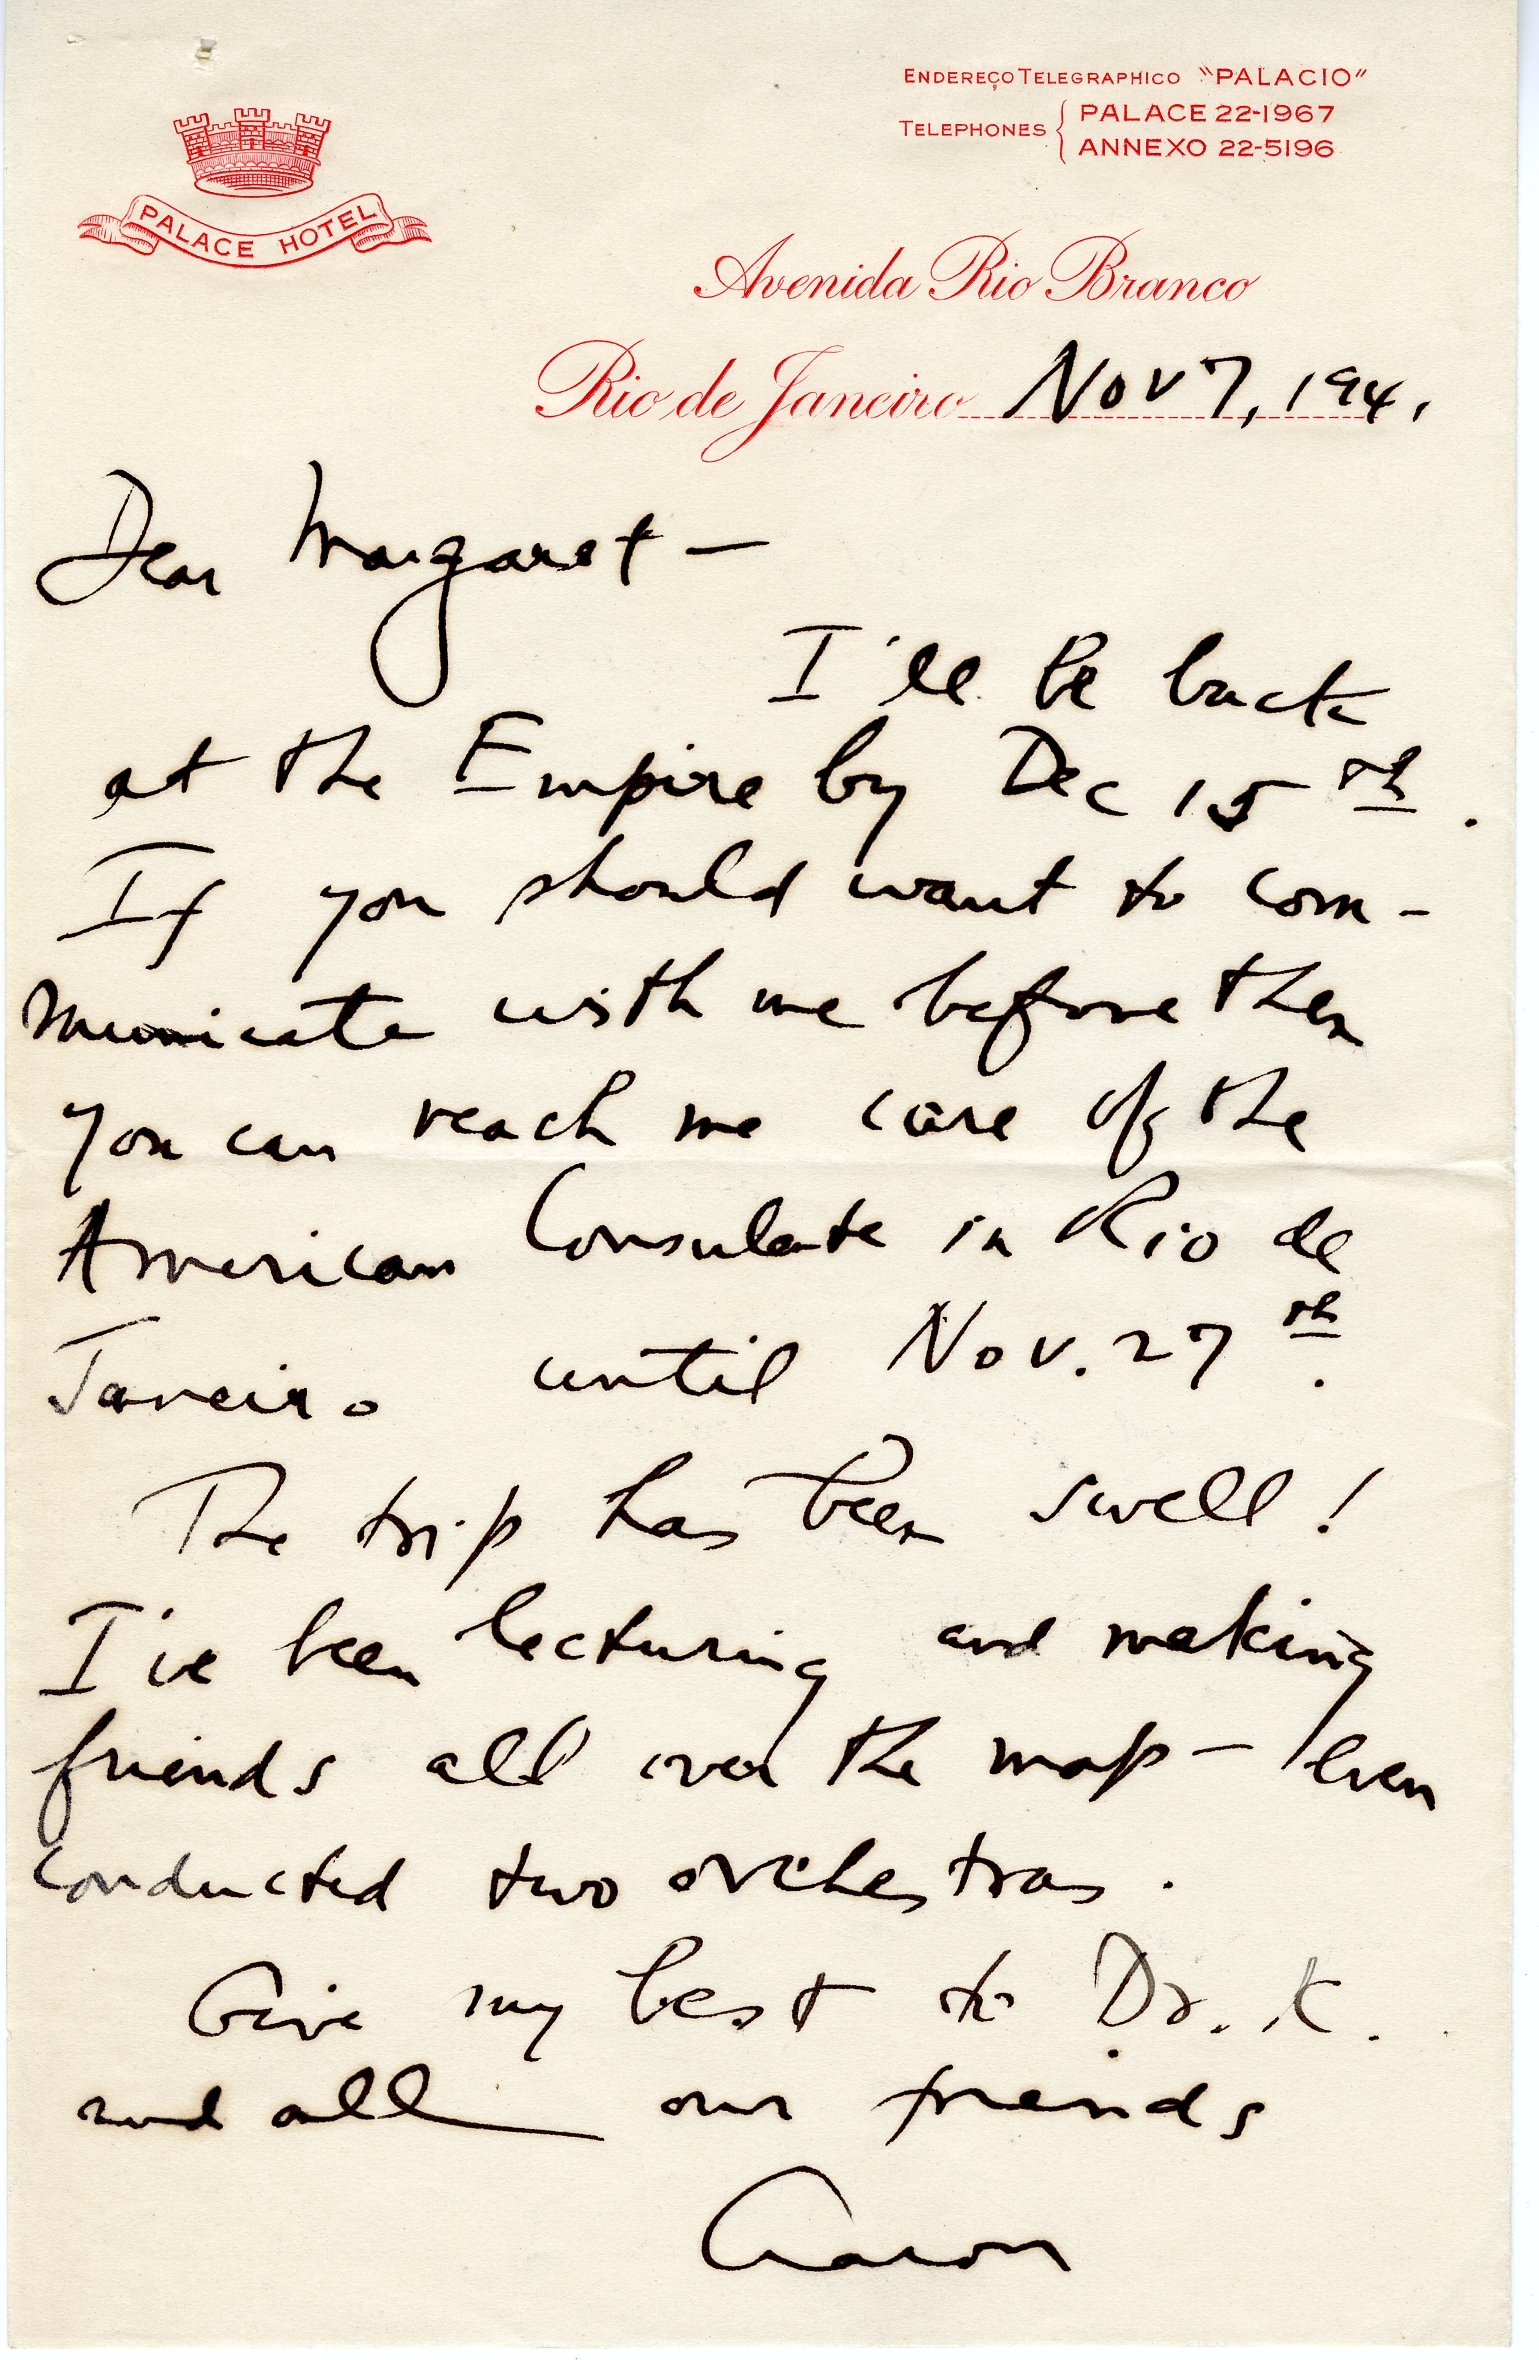 ENDEREÇO TELEGRAPHICO "PALACIO"
TELEPHONES { PALACE 22-1967
ANNEXO 22-5196
PALACE HOTEL
Avenida Rio Branco
Rio de Janeiro Nov 7, 1941
Dear Margaret —
I'll be back
at the Empire by Dec 15th.
If you should want to com-
municate with me before then
you can reach me care of the
American Consulate in Rio de
Janeiro until Nov. 27th.
The trip has been swell!
I've been lecturing and making
friends all over the map — even
conducted two orchestras.
Give my best to Dr. K.
and all our friends
Aaron